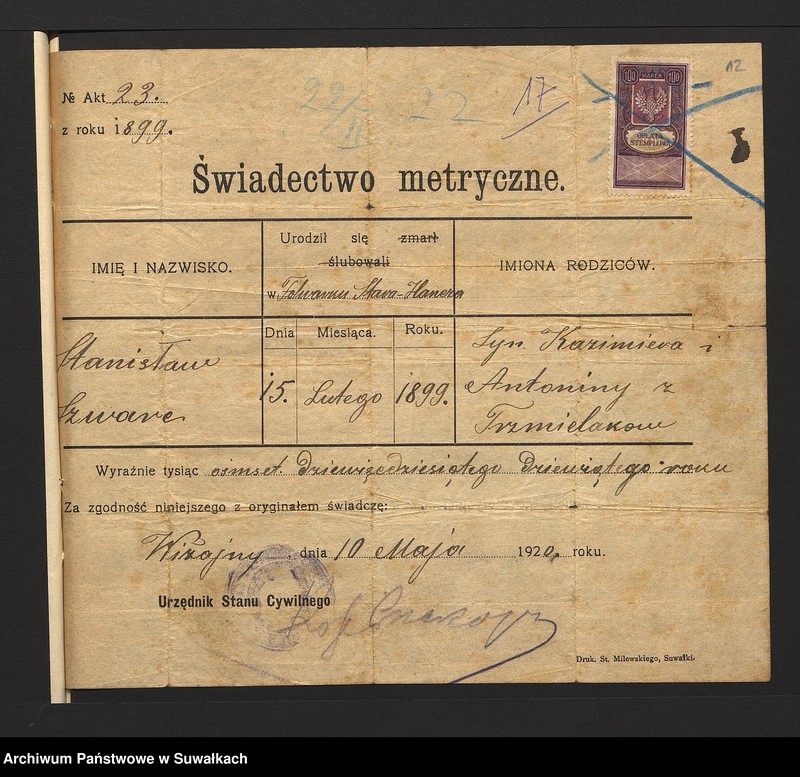 12
№ Akt 23.
z roku 1899.
22/II 22 17
100 MAREK 100
OPŁATA
STEMPLOWA
Świadectwo metryczne.
IMIĘ I NAZWISKO.
Urodził się zmarł
ślubowali
w Folwarku Stara-Hancza
IMIONA RODZICÓW.
Dnia Miesiąca. Roku.
Stanisław
Szwarc
15. Lutego 1899.
Syn Kazimiera i
Antoniny z
Trzmielakow
Wyraźnie tysiąc ośmset Dziewięćdziesiątego Dziewiątego roku
Za zgodność niniejszego z oryginałem świadczę:
Wiżajny dnia 10 Maja 1920. roku.
Urzędnik Stanu Cywilnego
Druk. St. Milewskiego, Suwałki.
Archiwum Państwowe w Suwałkach